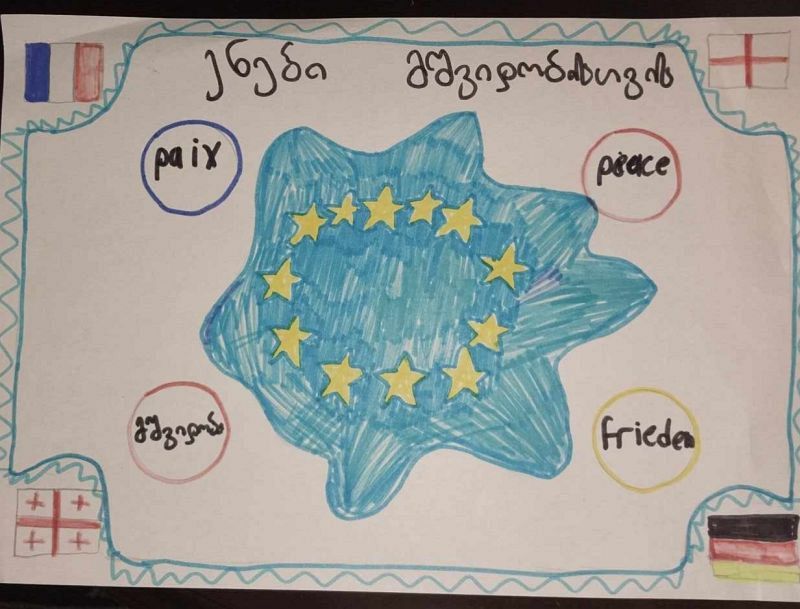 ენები მშვიდობისთვის
paix
peace
მშვიდობა
frieden